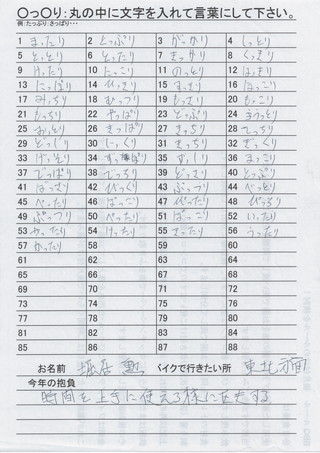 〇っ〇り:丸の中に文字を入れて言葉にして下さい。
例:たっぷり:きっぱり・・・
1 まったり 2 とっぷり 3 がっかり 4 しっとり
5 とっとり 6 とったり 7 きっかり 8 くっきり
9 けったり 10 にっこり 11 のっとり 12 はっきり
13 にっぱり 14 びっきり 15 すっきり 16 ほっこり
17 みっちり 18 むっつり 19 もっさり 20 もっこり
21 もっちり 22 やっぱり 23 とっぷり 24
25 おっとり 26 さっぱり 27 きっちり 28 てっきり
29 どっしり 30 じっくり 31 ぎっちり 32 ざっくり
33 げっそり 34 ずっぽり 35 ずっしり 36 まっこり
37 でっぱり 38 でっちり 39 どっさり 40 とっぷり
41 ばっさり 42 びっくり 43 ぶっつり 44 べっとり
45 べったり 46 ぱっこり 47 ぴったり 48
49 ぷっつり 50 ぺったり 51 ぽっこり 52 いったり
53 やったり 54 けったり 55 さったり 56 うったり
57 かったり 58 59 60
61 62 63 64
65 66 67 68
69 70 71 72
73 74 75 76
77 78 79 80
81 82 83 84
85 86 87 88
お名前 堀居 勲 バイクで行きたい所 東北方面
今年の抱負
時間を上手に使える様に工夫する